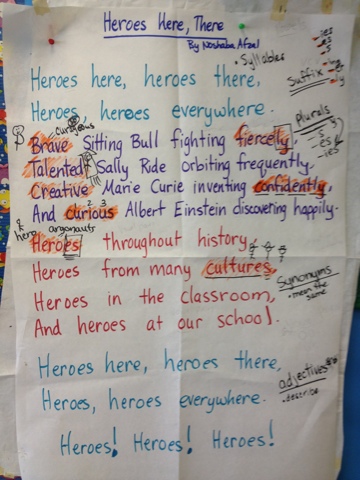 Heroes Here, There
By Noshaba Afzal
Syllables
Suffix
Heroes here, heroes there,
Heroes, heroes everywhere.
Plurals
courageous
Brave Sitting Bull fighting fiercely,
Talented Sally Ride orbiting frequently,
Creative Marie Curie inventing confidently,
And curious Albert Einstein discovering happily.
hero argonauts
Heroes throughout history,
Heroes from many cultures,
Synonyms
• mean the same
Heroes in the classroom,
And heroes at our school.
Heroes here, heroes there,
adjectives
• describe
Heroes, heroes everywhere.
Heroes! Heroes! Heroes!